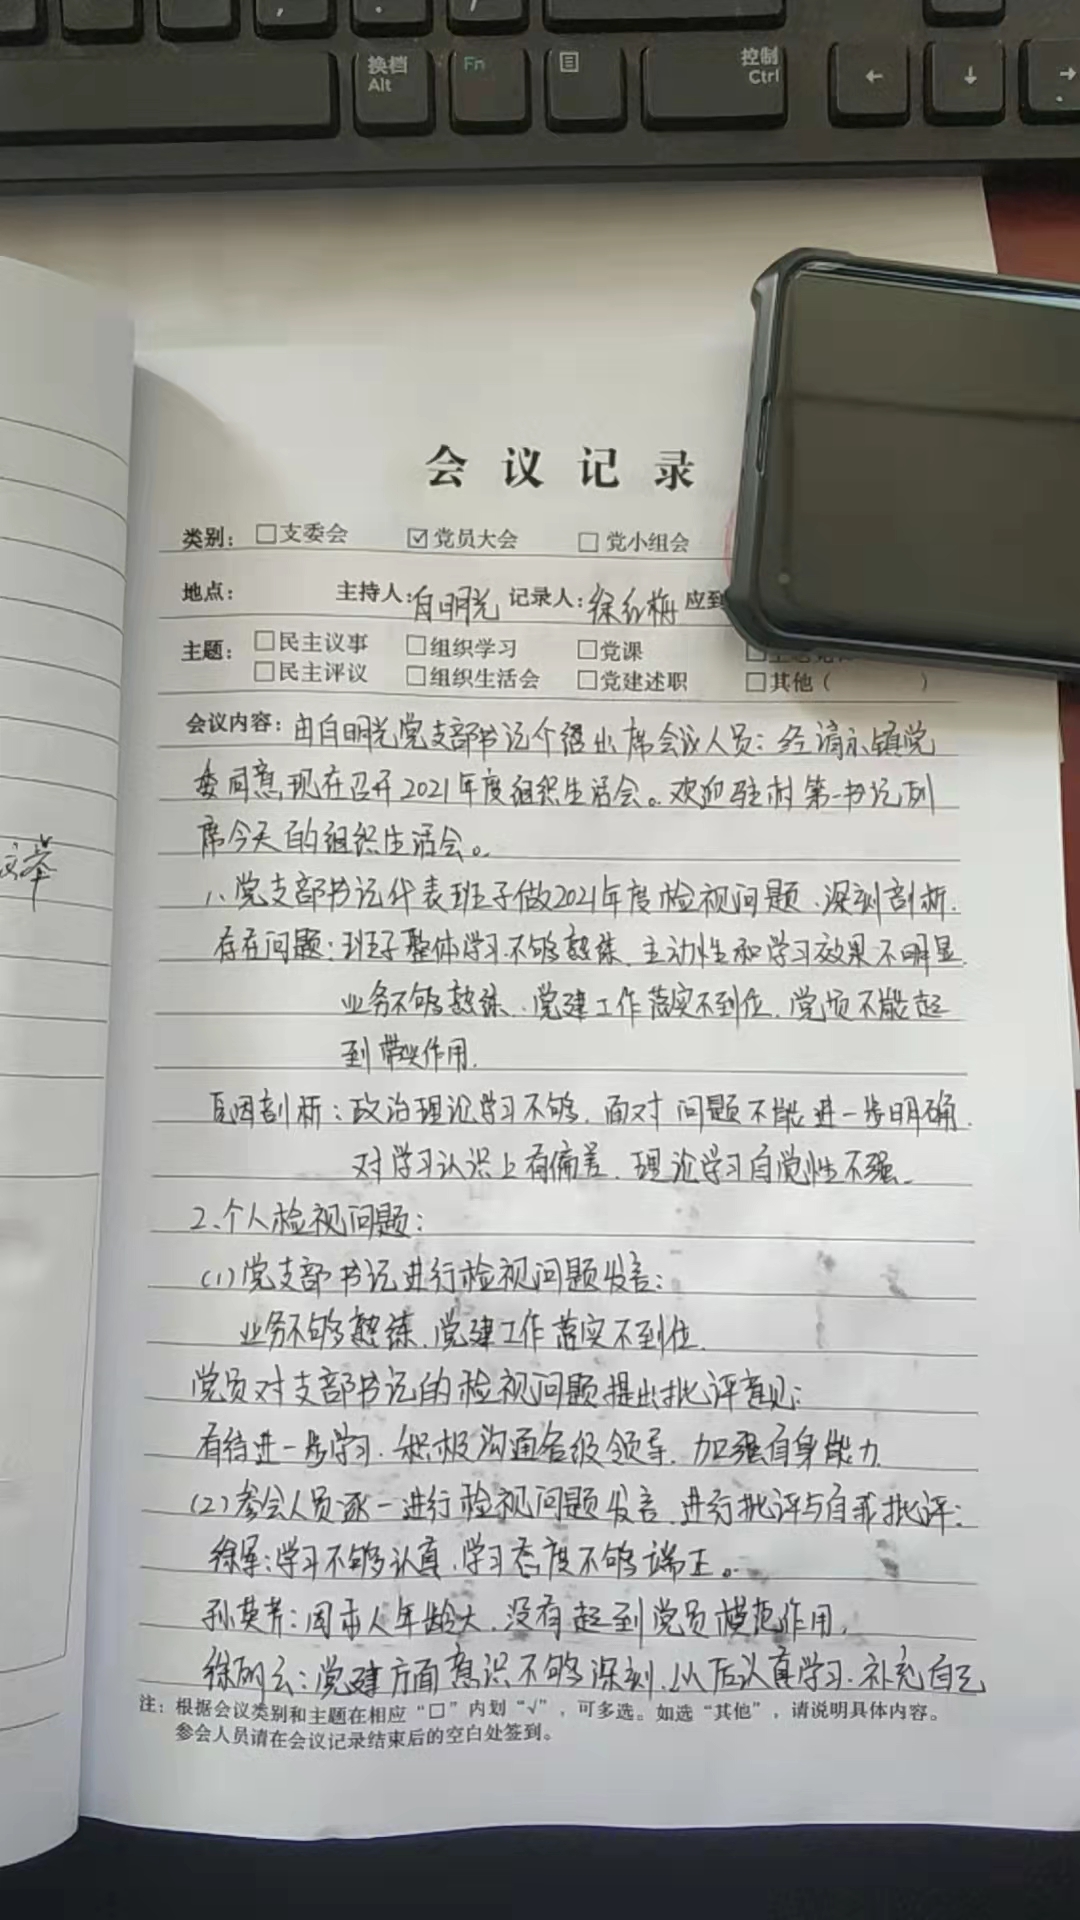 换档
Alt
Fn
控制
Ctrl
会议记录
类别: □支委会 ☑党员大会 □党小组会
地点: 主持人:白明光 记录人:徐红梅 应到
主题: □民主议事 □组织学习 □党课
□民主评议 □组织生活会 □党建述职 □其他( )
会议内容:由白明光党支部书记介绍出席会议人员:经清水镇党
委同意,现在召开2021年度组织生活会。欢迎驻村第一书记列
席今天的组织生活会。
1、党支部书记代表班子做2021年度检视问题、深刻剖析.
存在问题:班子整体学习不够熟练、主动性和学习效果不明显.
业务不够熟练、党建工作落实不到位.党员不能起
到带头作用.
原因剖析:政治理论学习不够.面对问题不能进一步明确.
对学习认识上有偏差、理论学习自觉性不强.
2、个人检视问题:
(1)党支部书记进行检视问题发言:
业务不够熟练、党建工作落实不到位.
党员对支部书记的检视问题提出批评意见:
有待进一步学习.积极沟通各级领导.加强自身能力
(2)参会人员逐一进行检视问题发言.进行批评与自我批评:
徐军:学习不够认真、学习态度不够端正。
孙英芳:因本人年龄大、没有起到党员模范作用.
徐明云:党建方面意识不够深刻.以后认真学习.补充自己
注: 根据会议类别和主题在相应“□”内划“√”,可多选。如选“其他”,请说明具体内容。
参会人员请在会议记录结束后的空白处签到。